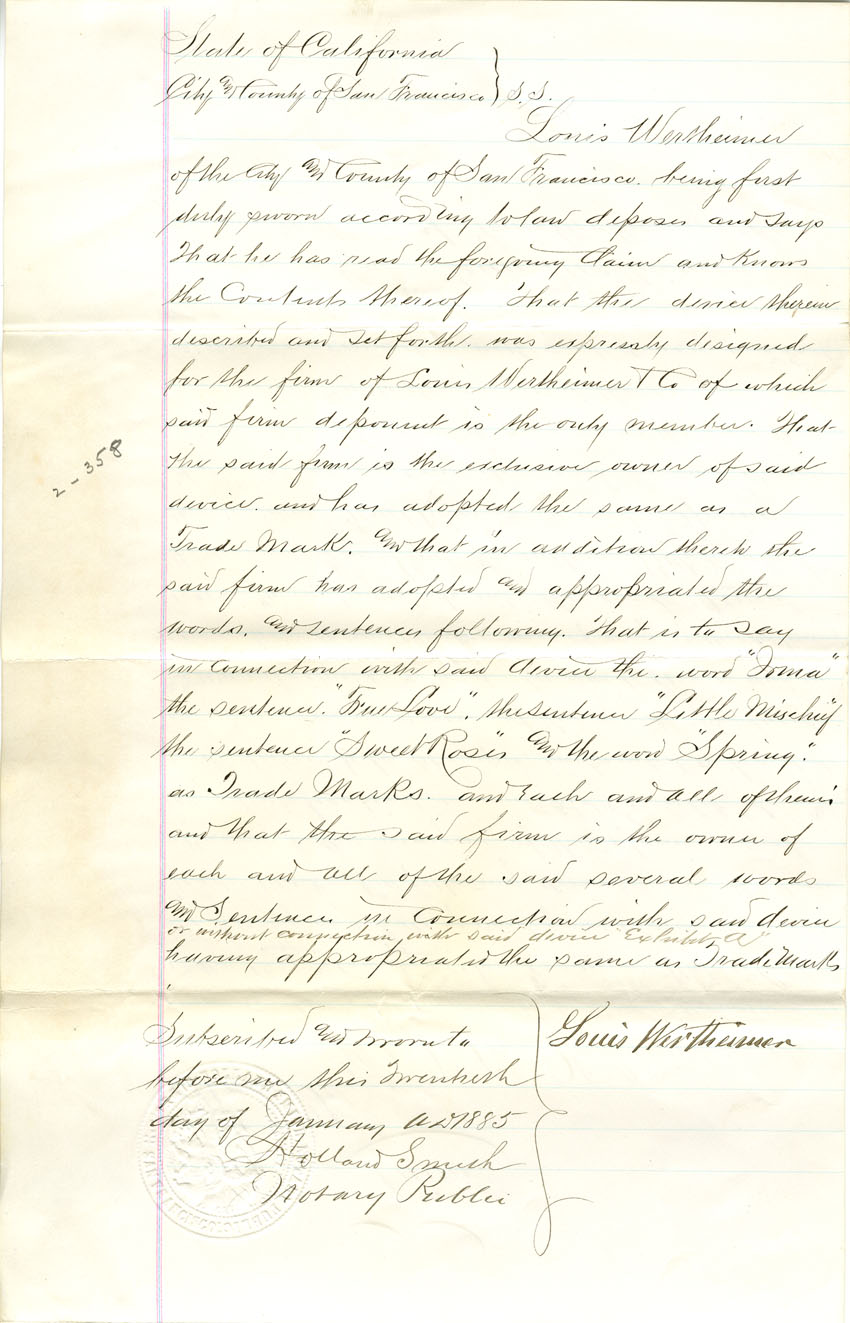 State of California
City and County of San Francisco } S.S.
Louis Wertheimer
of the City and County of San Francisco. being first
duly sworn according to law deposes and says
That he has read the foregoing Claim and Knows
the Contents thereof. That the device therein
described and set forth. was expressly designed
for the firm of Louis Wertheimer & Co of which
said firm deponent is the only member. That
the said firm is the exclusive owner of said
device. and has adopted the same as a
Trade Mark. and that in addition thereto the
said firm has adopted and appropriated the
words. and sentences following. That is to say
in connection with said device the. word "Irma"
the sentence. "True Love". the sentence "Little Mischief
the sentence "Sweet Roses" and the word "Spring."
as Trade Marks. and each and all of them:
and that the said firm is the owner of
each and all of the said several words
and Sentences in Connection with said device
or without connection with said device "Exhibit A"
having appropriated the same as Trade Marks
2-358
Subscribed and sworn to
before me this Twentieth
day of January AD 1885
Holland Smith
Notary Public
Louis Wertheimer